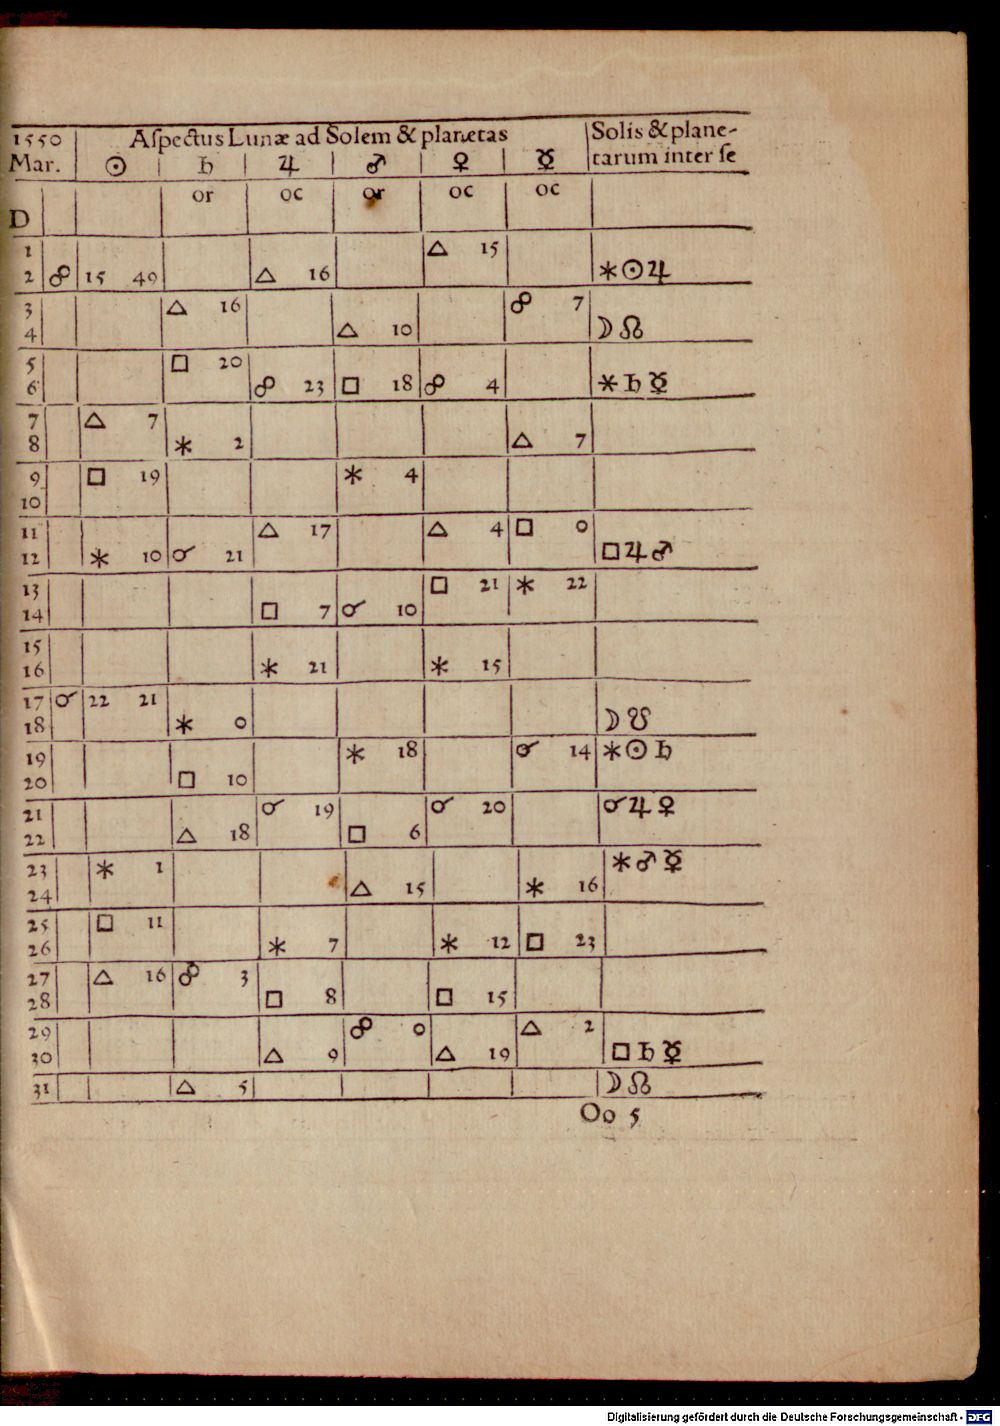 1550 Aſpectus Lunæ ad Solem & planetas Solis & plane-
Mar. ☉ ♄ ♃ ♂ ♀ ☿ tarum inter ſe
D or oc or oc oc
1 △ 15
2 ☍ 15 49 △ 16 ⚹ ☉ ♃
3 △ 16 ☍ 7
4 △ 10 ☽ ☊
5 □ 20
6 ☍ 23 □ 18 ☍ 4 ⚹ ♄ ☿
7 △ 7
8 ⚹ 2 △ 7
9 □ 19 ⚹ 4
10
11 △ 17 △ 4 □ 0
12 ⚹ 10 ☌ 21 □ ♃ ♂
13 □ 21 ⚹ 22
14 □ 7 ☌ 10
15
16 ⚹ 21 ⚹ 15
17 ☌ 22 21
18 ⚹ 0 ☽ ☋
19 ⚹ 18 ☌ 14 ⚹ ☉ ♄
20 □ 10
21 ☌ 19 ☌ 20 ☌ ♃ ♀
22 △ 18 □ 6
23 ⚹ 1 ⚹ ♂ ☿
24 △ 15 ⚹ 16
25 □ 11
26 ⚹ 7 ⚹ 12 □ 23
27 △ 16 ☍ 3
28 □ 8 □ 15
29 ☍ 0 △ 2
30 △ 9 △ 19 □ ♄ ☿
31 △ 5 ☽ ☊
Oo 5
Digitalisierung gefördert durch die Deutsche Forschungsgemeinschaft - DFG